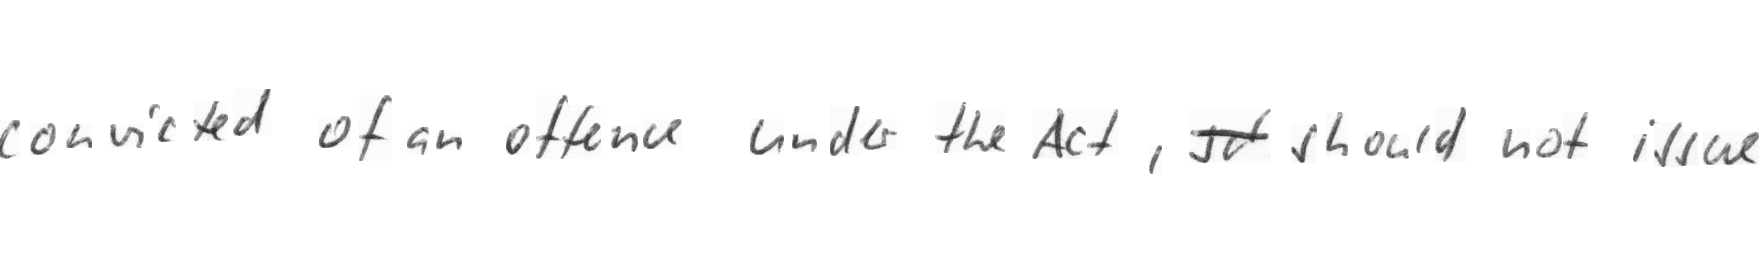 convicted of an offence under the Act, should not issue